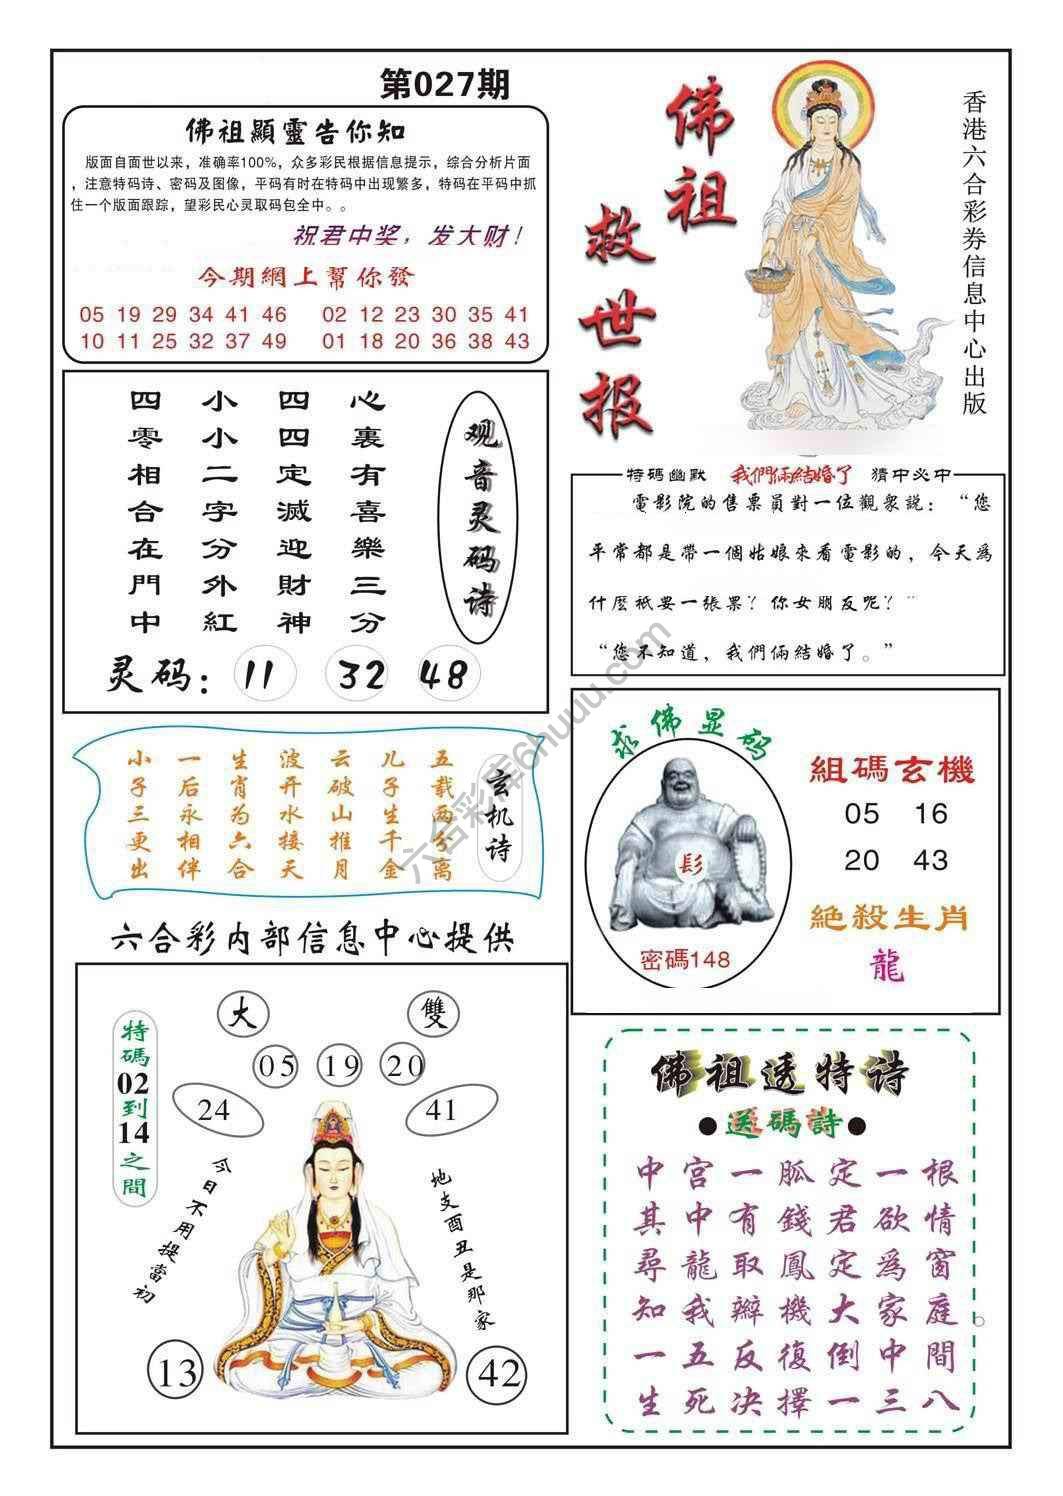 第027期
佛祖顯靈告你知
版面自面世以来，准确率100%，众多彩民根据信息提示，综合分析片面
，注意特码诗、密码及图像，平码有时在特码中出现繁多，特码在平码中抓
住一个版面跟踪，望彩民心灵取码包全中。。
祝君中奖，发大财！
今期網上幫你發
05 19 29 34 41 46 02 12 23 30 35 41
10 11 25 32 37 49 01 18 20 36 38 43
佛祖
救世报
香港六合彩券信息中心出版
观音灵码诗
心裏有喜樂三分
四四定滅迎財神
小小二字分外紅
四零相合在門中
灵码：11 32 48
特碼幽默 我們倆結婚了 猜中必中
電影院的售票員對一位觀衆説：“您
平常都是帶一個姑娘來看電影的，今天爲
什麽祇要一張票？你女朋友呢？”
“您不知道，我們倆結婚了。”
玄机诗
五载两分离
儿子生千金
云破山推月
波开水接天
生肖为六合
一后永相伴
小子三更出
求佛显码
髟
密碼148
組碼玄機
05 16
20 43
絶殺生肖
龍
六合彩内部信息中心提供
大 雙
05 19 20
24 41
特碼02到14之間
今日不用提當初
地支酉丑是那家
13 42
佛祖透特诗
●送碼詩●
中宫一胍定一根
其中有錢君欲情
尋龍取鳳定爲窗
知我辦機大家庭。
一五反復倒中間
生死决擇一三八
六合彩库6huuu.com